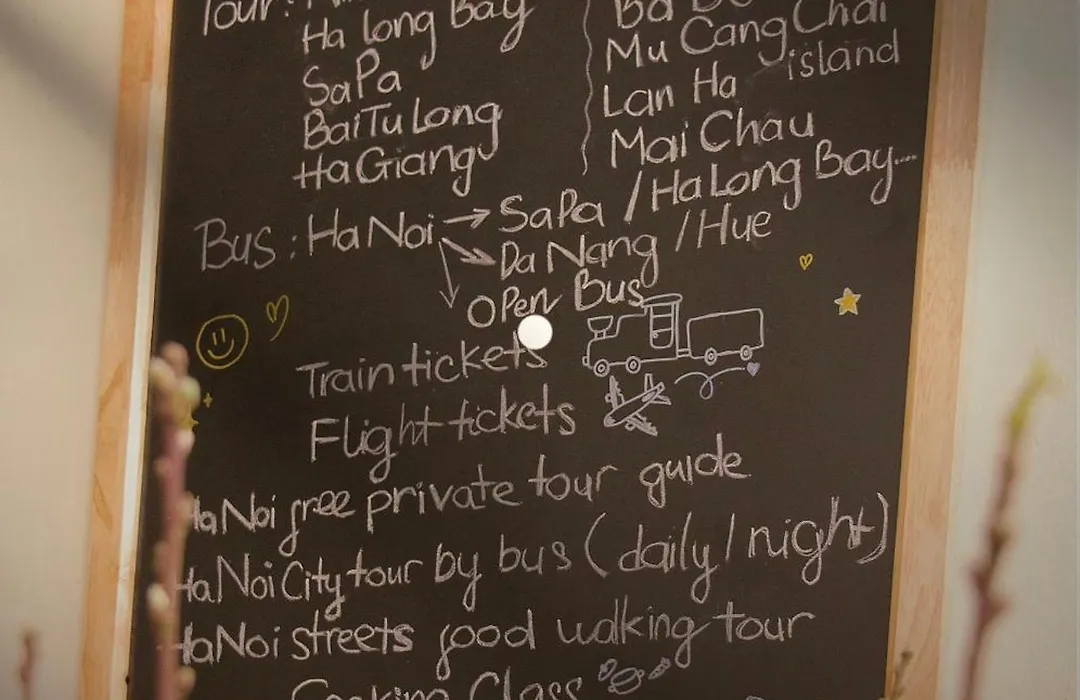 Tour :
Ha long Bay
SaPa
BaiTu Long
Ha Giang
Ba
Mu Cang Chai
Lan Ha island
Mai Chau
Bus : Ha Noi → SaPa / Ha Long Bay....
Da Nang / Hue
Open Bus
Train tickets
Flight tickets
Ha Noi free private tour guide
Ha Noi City tour by bus ( daily / night)
Ha Noi streets good walking tour
Cooking Class